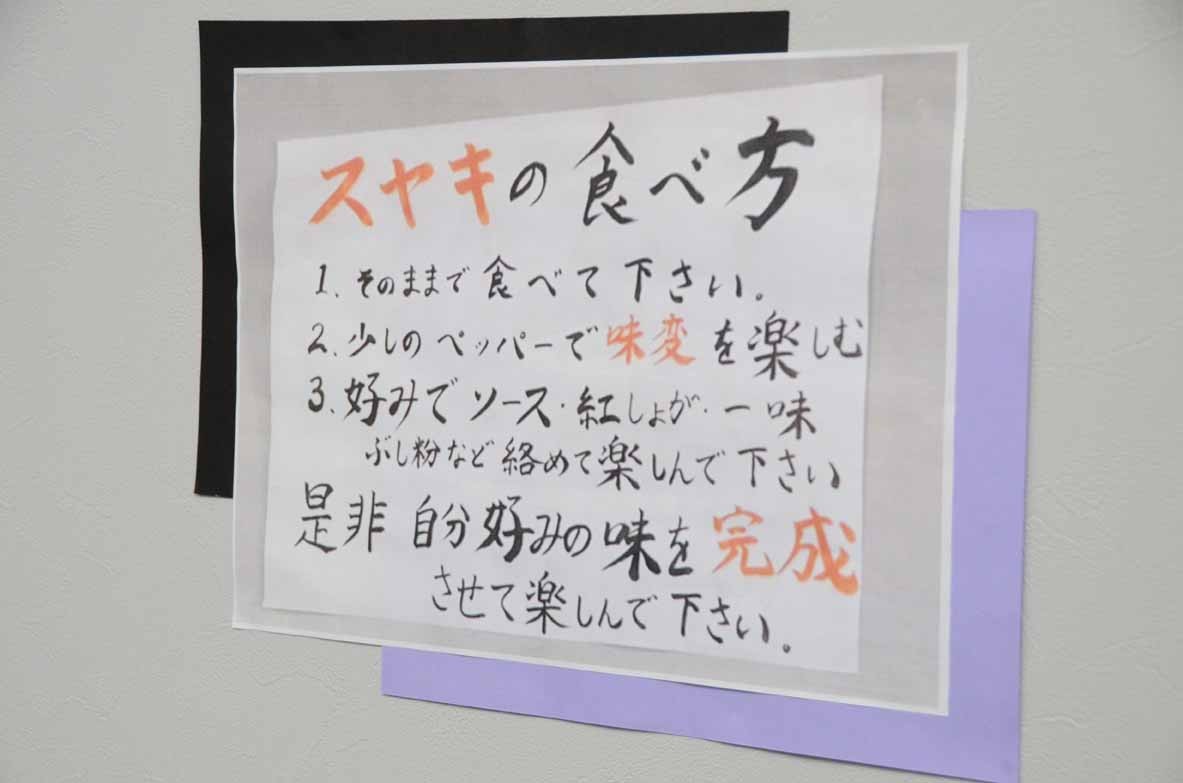 スヤキの食べ方
1、そのままで食べて下さい。
2、少しのペッパーで味変を楽しむ
3、好みでソース・紅しょが・一味
ぶし粉など絡めて楽しんで下さい
是非自分好みの味を完成
させて楽しんで下さい。